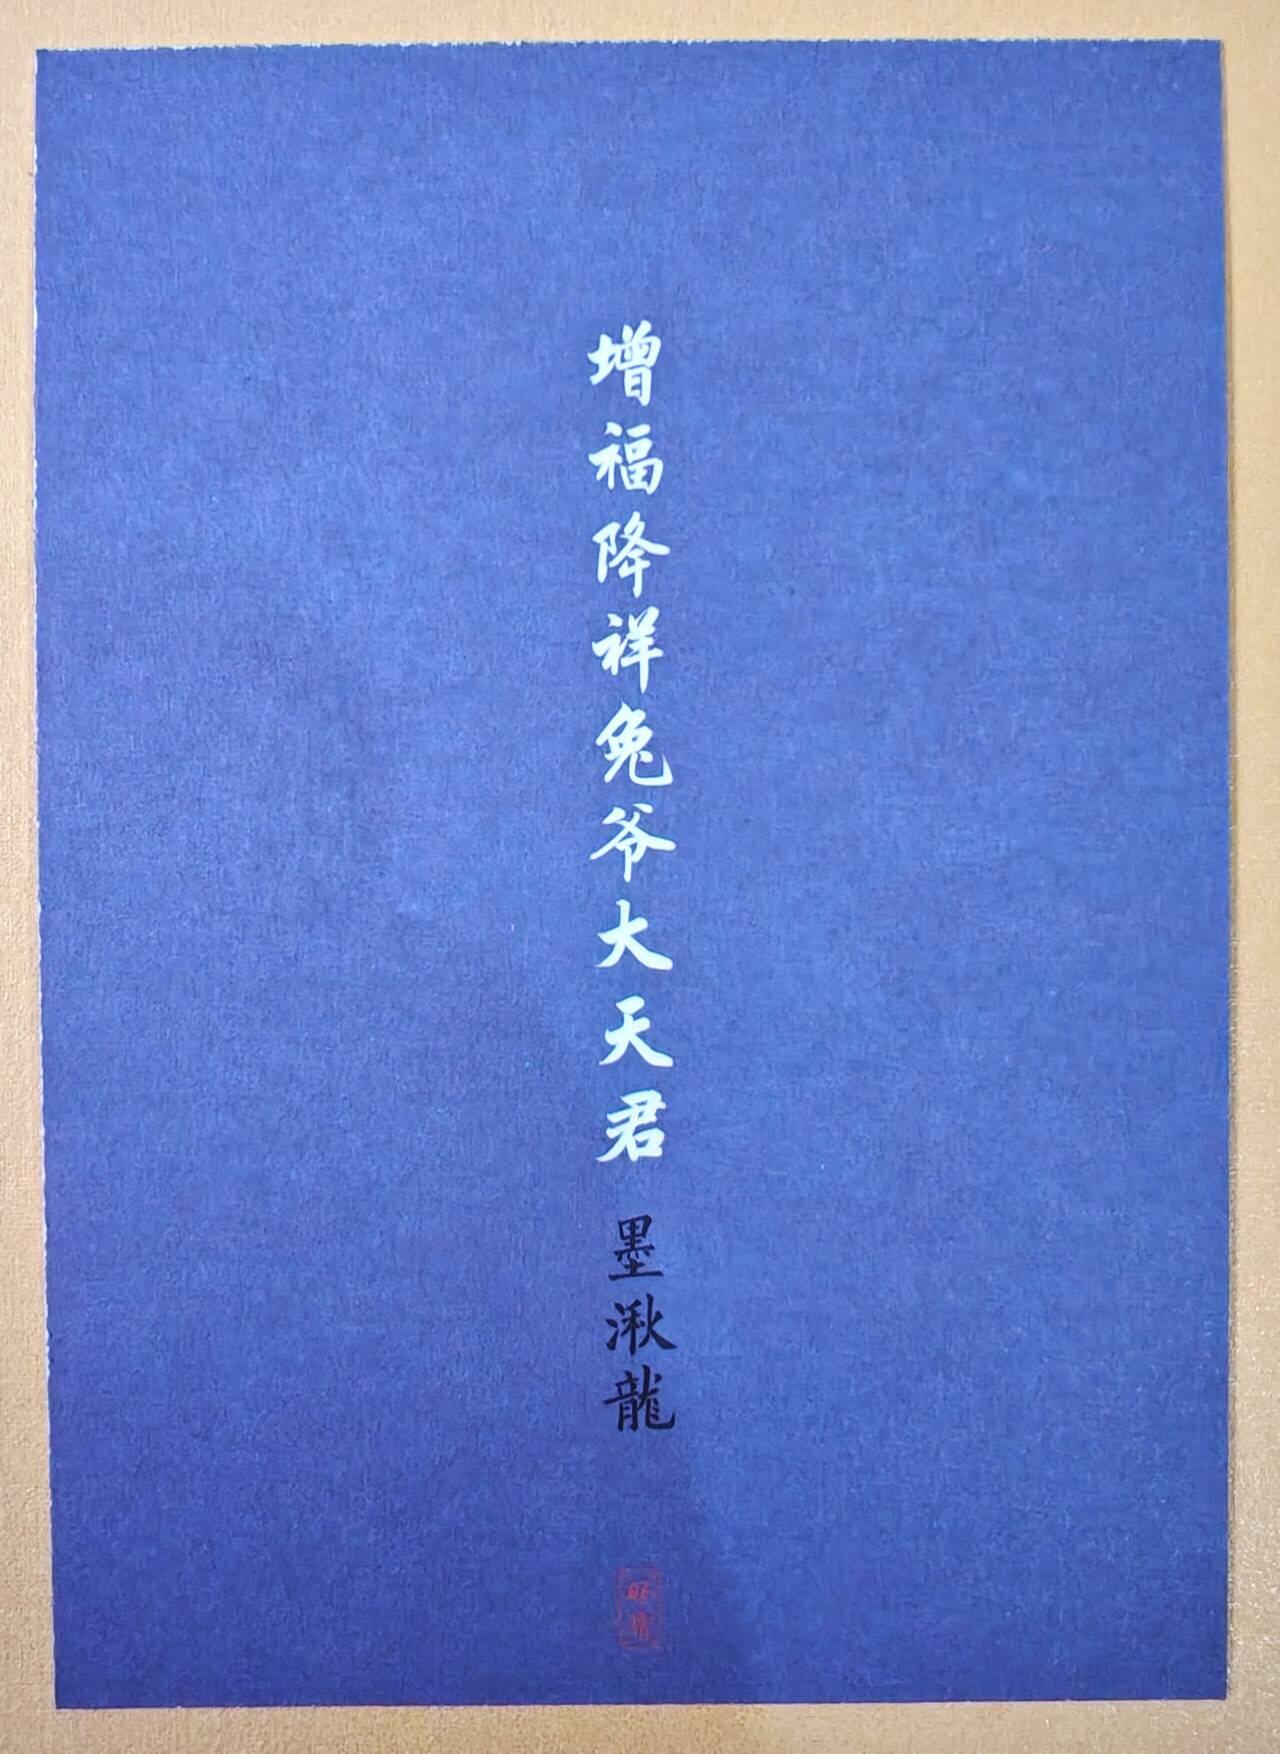 增福降祥兔爷大天君
墨湫龍